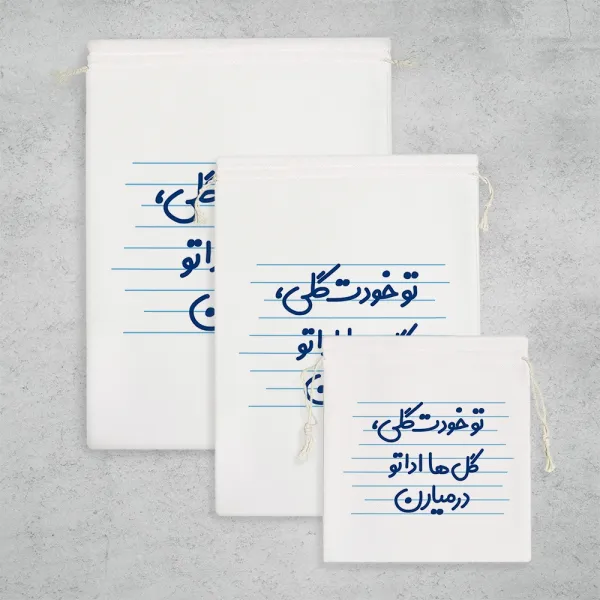 گلی،
اتو
ن
تو خودت گلی،
گل ها اداتو
ن
تو خودت گلی،
گل ها اداتو
درمیارن